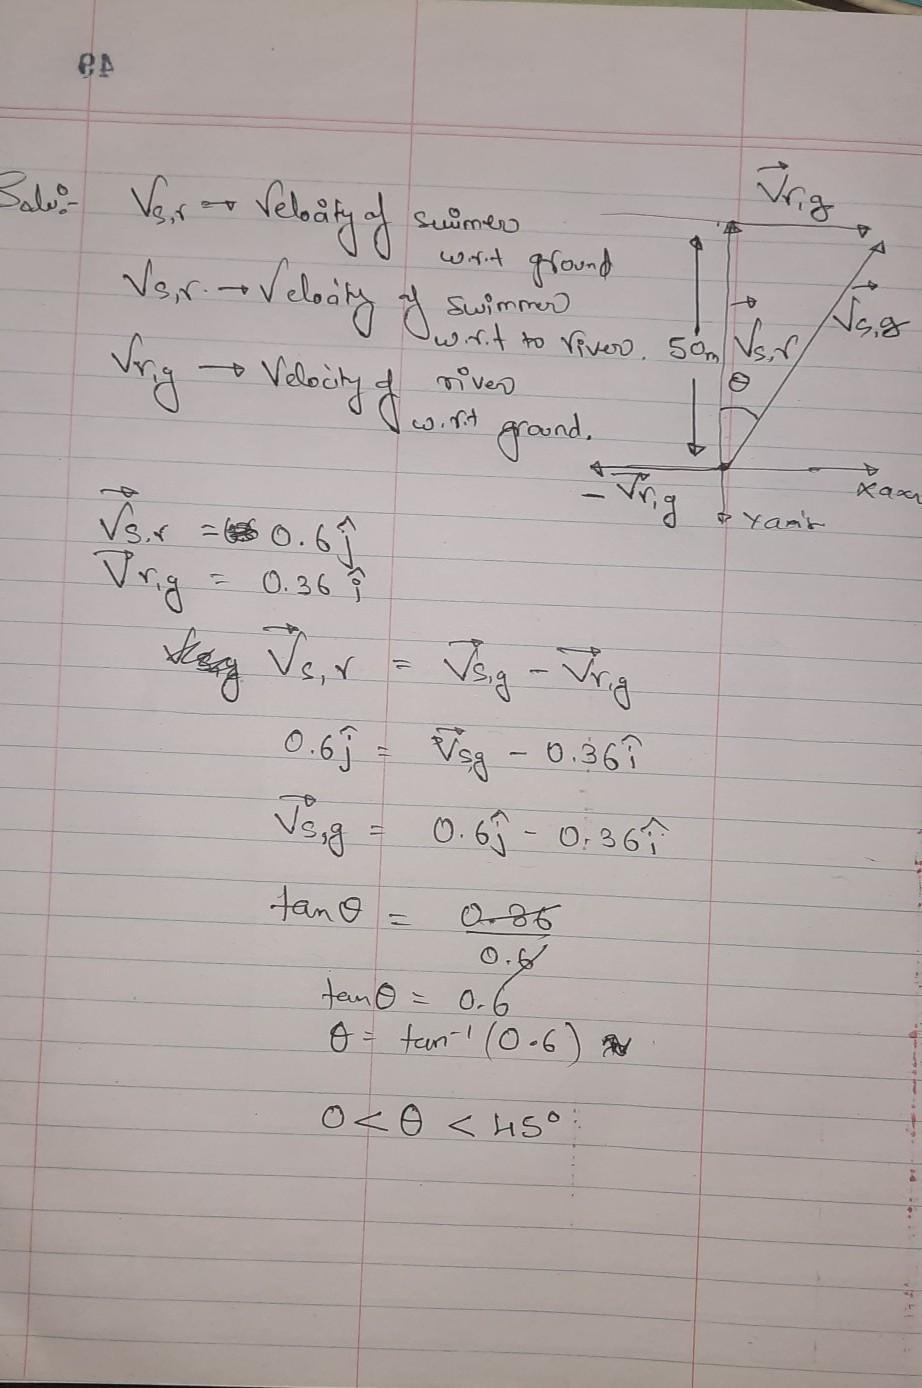 49
Solu:- Vs,r → Velocity of swimer
w.r.t ground
Vs,r. → Velocity of swimmer
w.r.t to river.
Vr,g → Velocity of river
w.r.t ground.
V⃗r,g
V⃗s,g
50m
V⃗s,r
θ
- V⃗r,g
X axis
Y axis
V⃗s,r = 0.6 ĵ
V⃗r,g = 0.36 î
V⃗s,r = V⃗s,g - V⃗r,g
0.6ĵ = V⃗sg - 0.36î
V⃗s,g = 0.6ĵ - 0.36î
tanθ = 0.36
0.6
tanθ = 0.6
θ = tan⁻¹ (0.6)
0 < θ < 45°